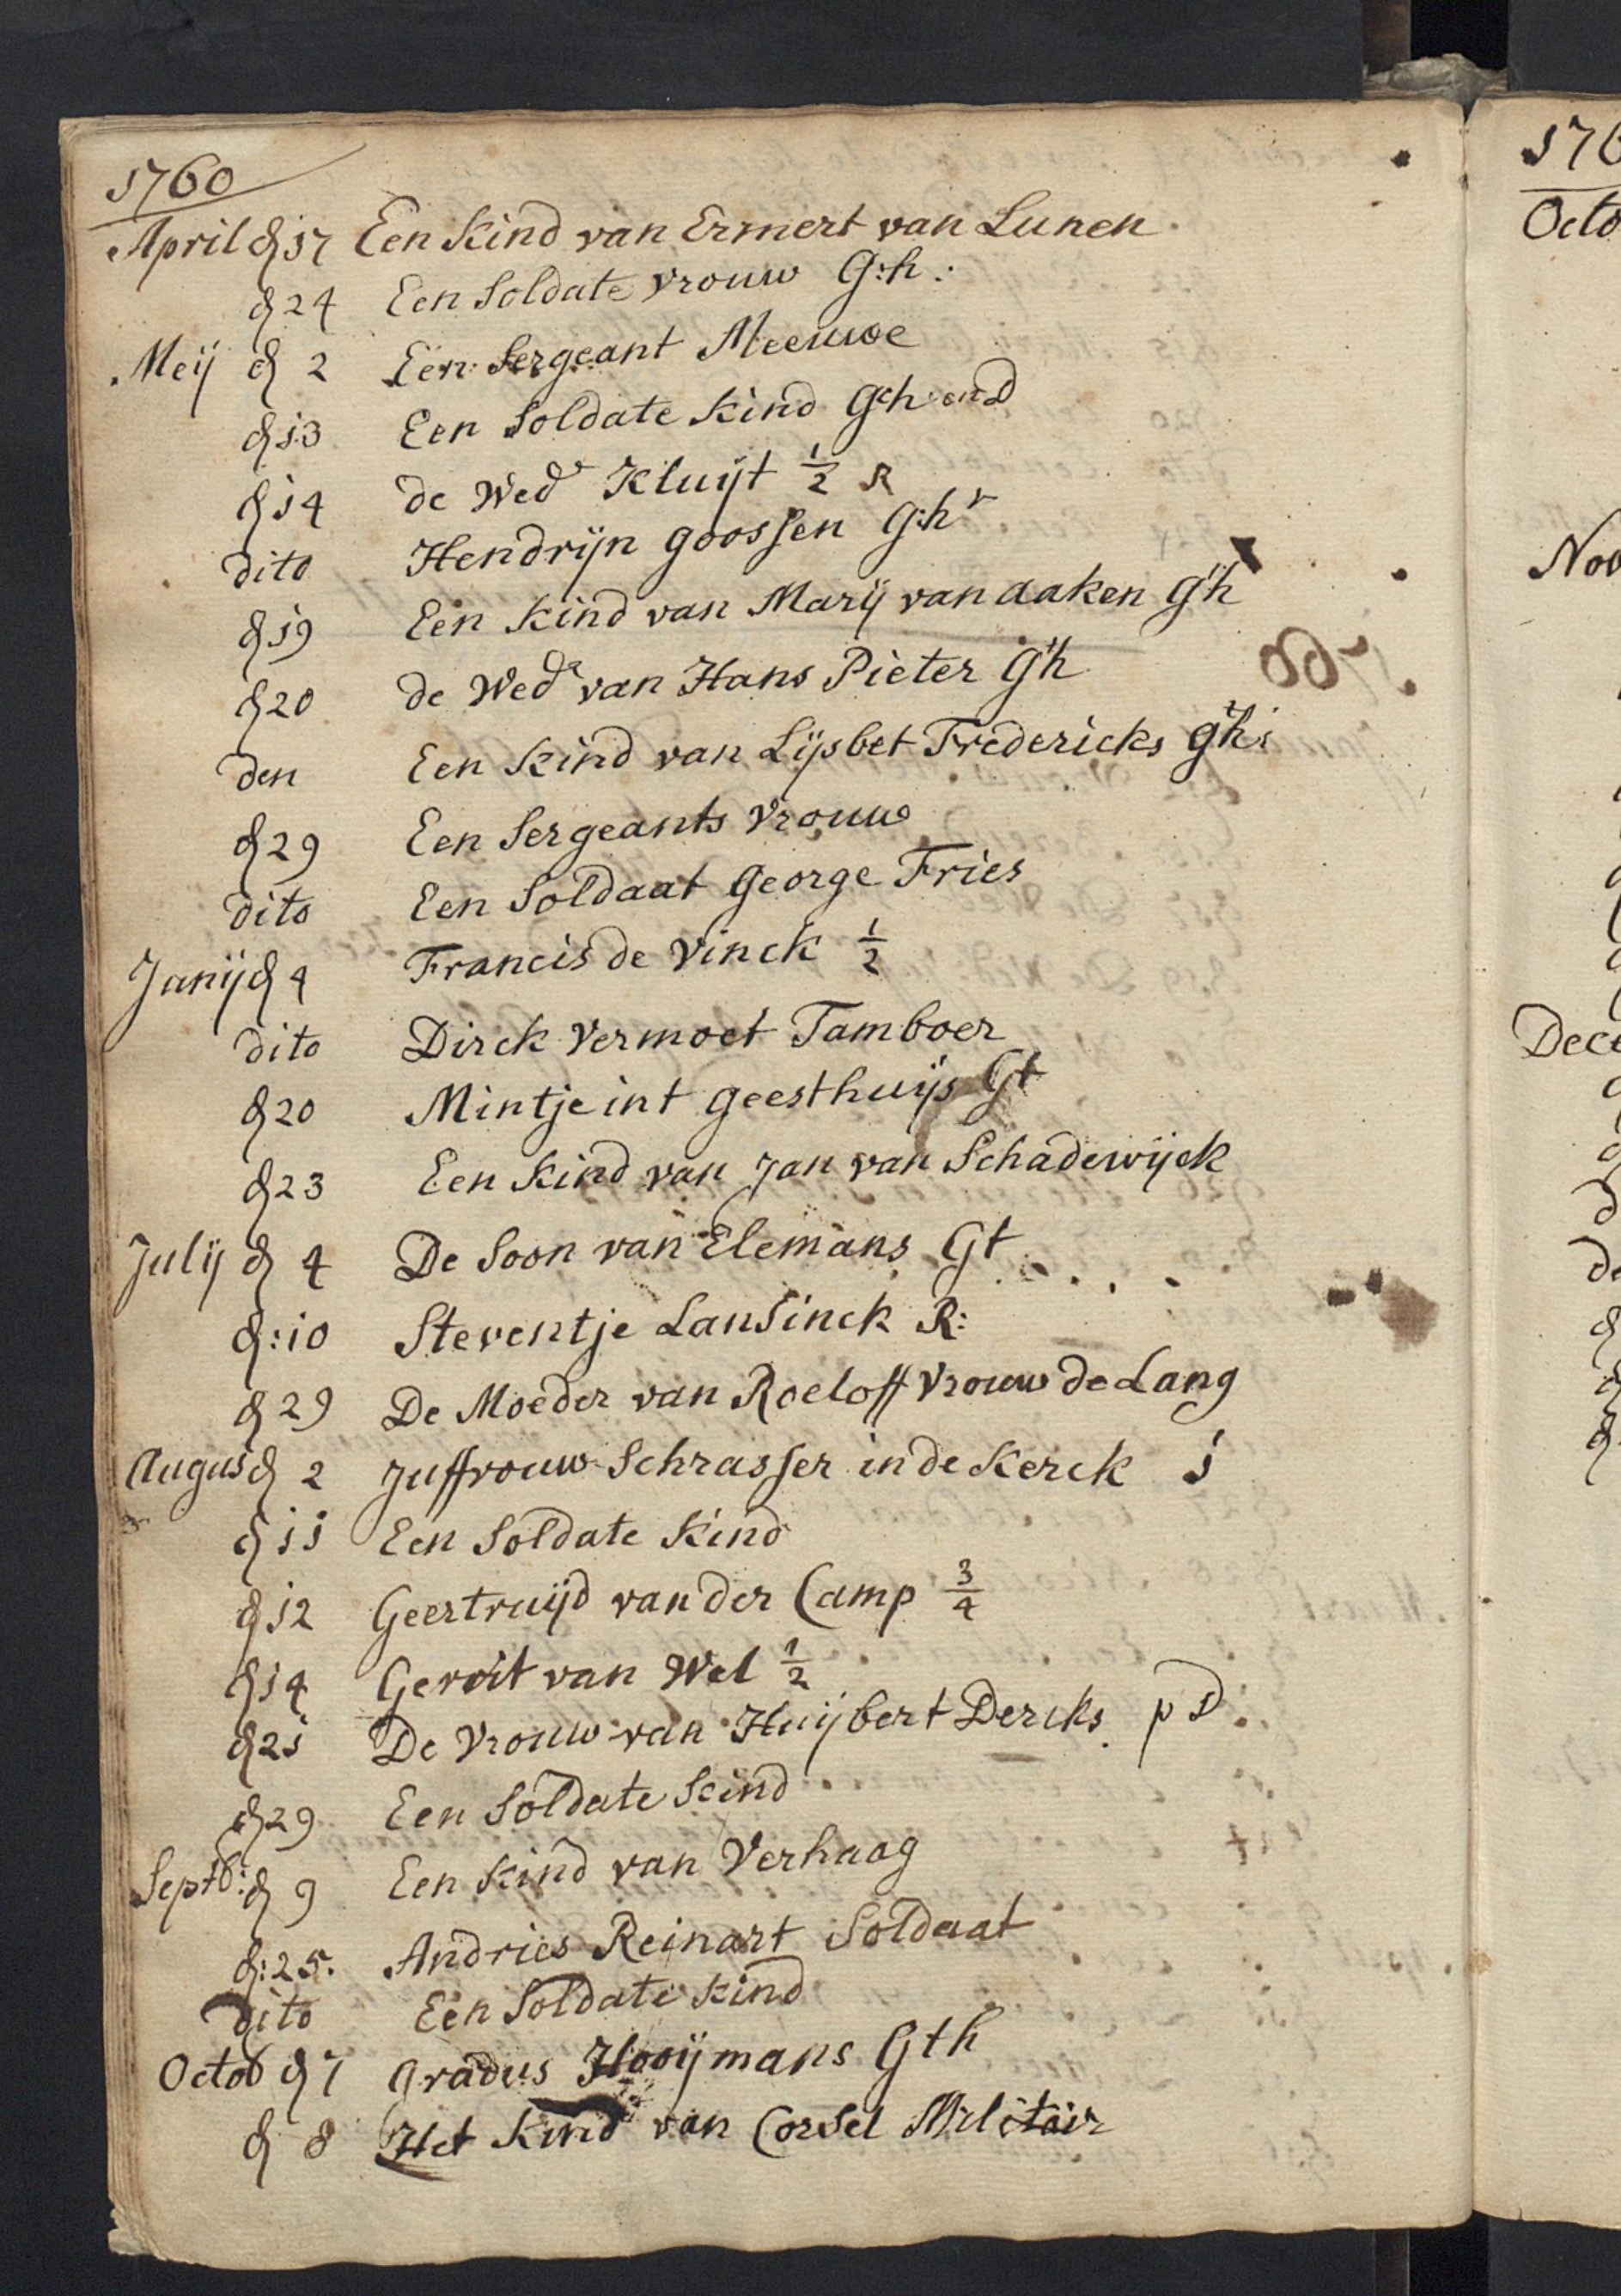 1760
April d 17 Een Kind van Ermert van Lunen
d 24 Een Soldate vrouw G:h:
Meij d 2 Een Sergeant Meeuwe
d 13 Een Soldate Kind
d 14 de Wed^e Kluijt 1/2 R
dito Hendrijn goossen G:h
d 19 Een Kind van Marij van aaken Gh
d 20 de Wed^e van Hans Pieter Gh
den Een Kind van Lijsbet Fredericks gh:
d 29 Een Sergeants vrouw
dito Een Soldaat George Fries
Junij d 4 Francis de Vinck 1/2
dito Dirck Vermoet Tamboer
d 20 Mintje int geesthuijs Gt
d 23 Een Kind van Jan van Schadewijck
Julij d 4 De Soon van Elemans Gt
d:10 Steventje Lansinck R:
d 29 De Moeder van Roeloff vrouw de Lang
Augus d 2 Juffrouw Schrasser in de Kerck 1
d 11 Een Soldate Kind
d 12 Geertruijd van der Camp 3/4
d 14 Gerrit van Wel 1/2
d 21 De vrouw van Huijbert Dercks pd
d 29 Een Soldate Kind
Septb: d 9 Een Kind van Verhaag
d:25. Andries Reinart Soldaat
dito Een Soldate Kind
Octob d 7 gradus Hooijmans Gth
d 8 Het Kind van Corsel Militair
176
Octo
Nov
Dece